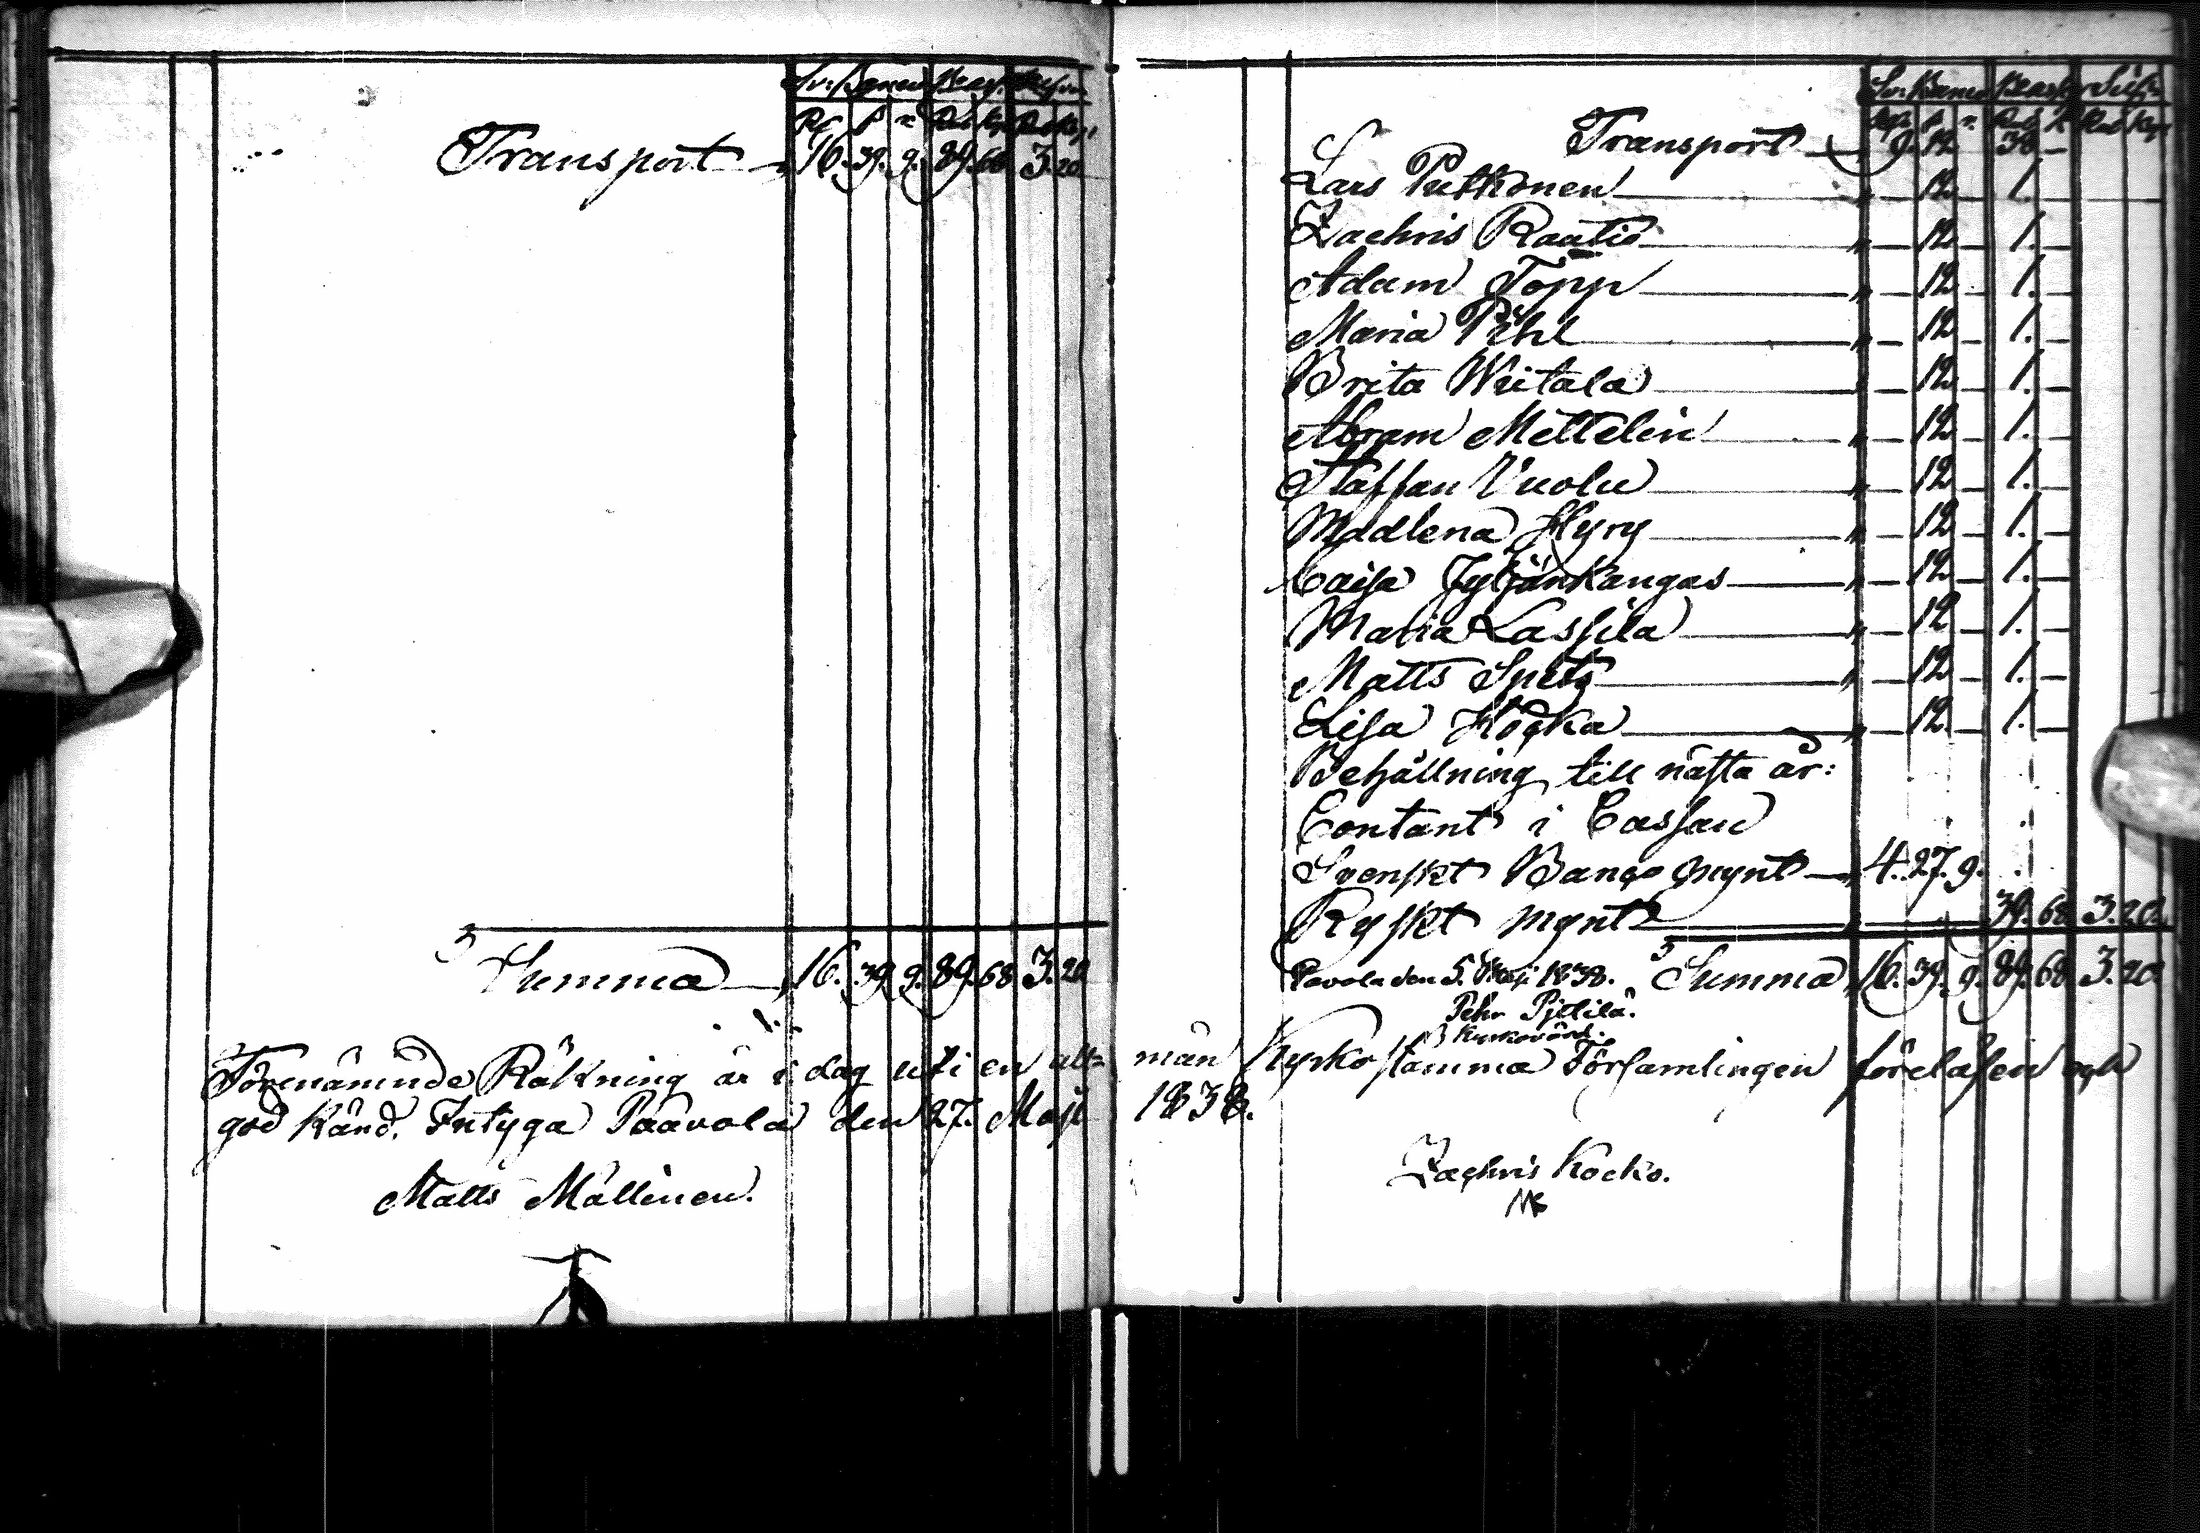 Sv: Banco
Transport 16. 39. 9. 89. 68 3. 20
Summa 16. 39. 9. 89. 68 3. 20
Förenämnde Räkning är i dag uti en all=
god känd. Intyga Paavola den 27. Maji
Matts Mällinen.
Sv: Banco
Transport 9. 12 38 —
Lars Putkonen " — 12 — 1. —
Zachris Raatio " — 12 — 1. —
Adam Topp " — 12 — 1. —
Maria Pihl " — 12 — 1. —
Brita Wiitala " — 12 — 1. —
Abram Mettelin " — 12 — 1. —
Staffan Vuolu " — 12 — 1. —
Madlena Hyry " — 12 — 1. —
Caisa Jyljänkangas " — 12 — 1. —
Maria Lassila " — 12 — 1. —
Matts Spets " — 12 — 1. —
Lisa Höckä " — 12 — 1. —
Behållning till nästa år:
Contant i Cassan
Svenskt Banco mynt 4. 27. 9.
Ryskt mynt 39. 68 3. 20.
Pavola den 5. Maji 1838. Summa 16. 39. 9. 89. 68 3. 20
Pehr Pjltilä.
Kyrkovärd.
män Kyrko stämma Församlingen föreläsen och
1838.
Zachris Kocko.